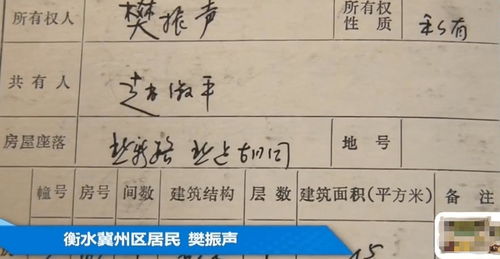 所有权人 樊振声 所有权性质 私有
共有人 赵淑平
房屋座落 地号
幢号 房号 间数 建筑结构 层数 建筑面积(平方米) 备注
衡水冀州区居民 樊振声